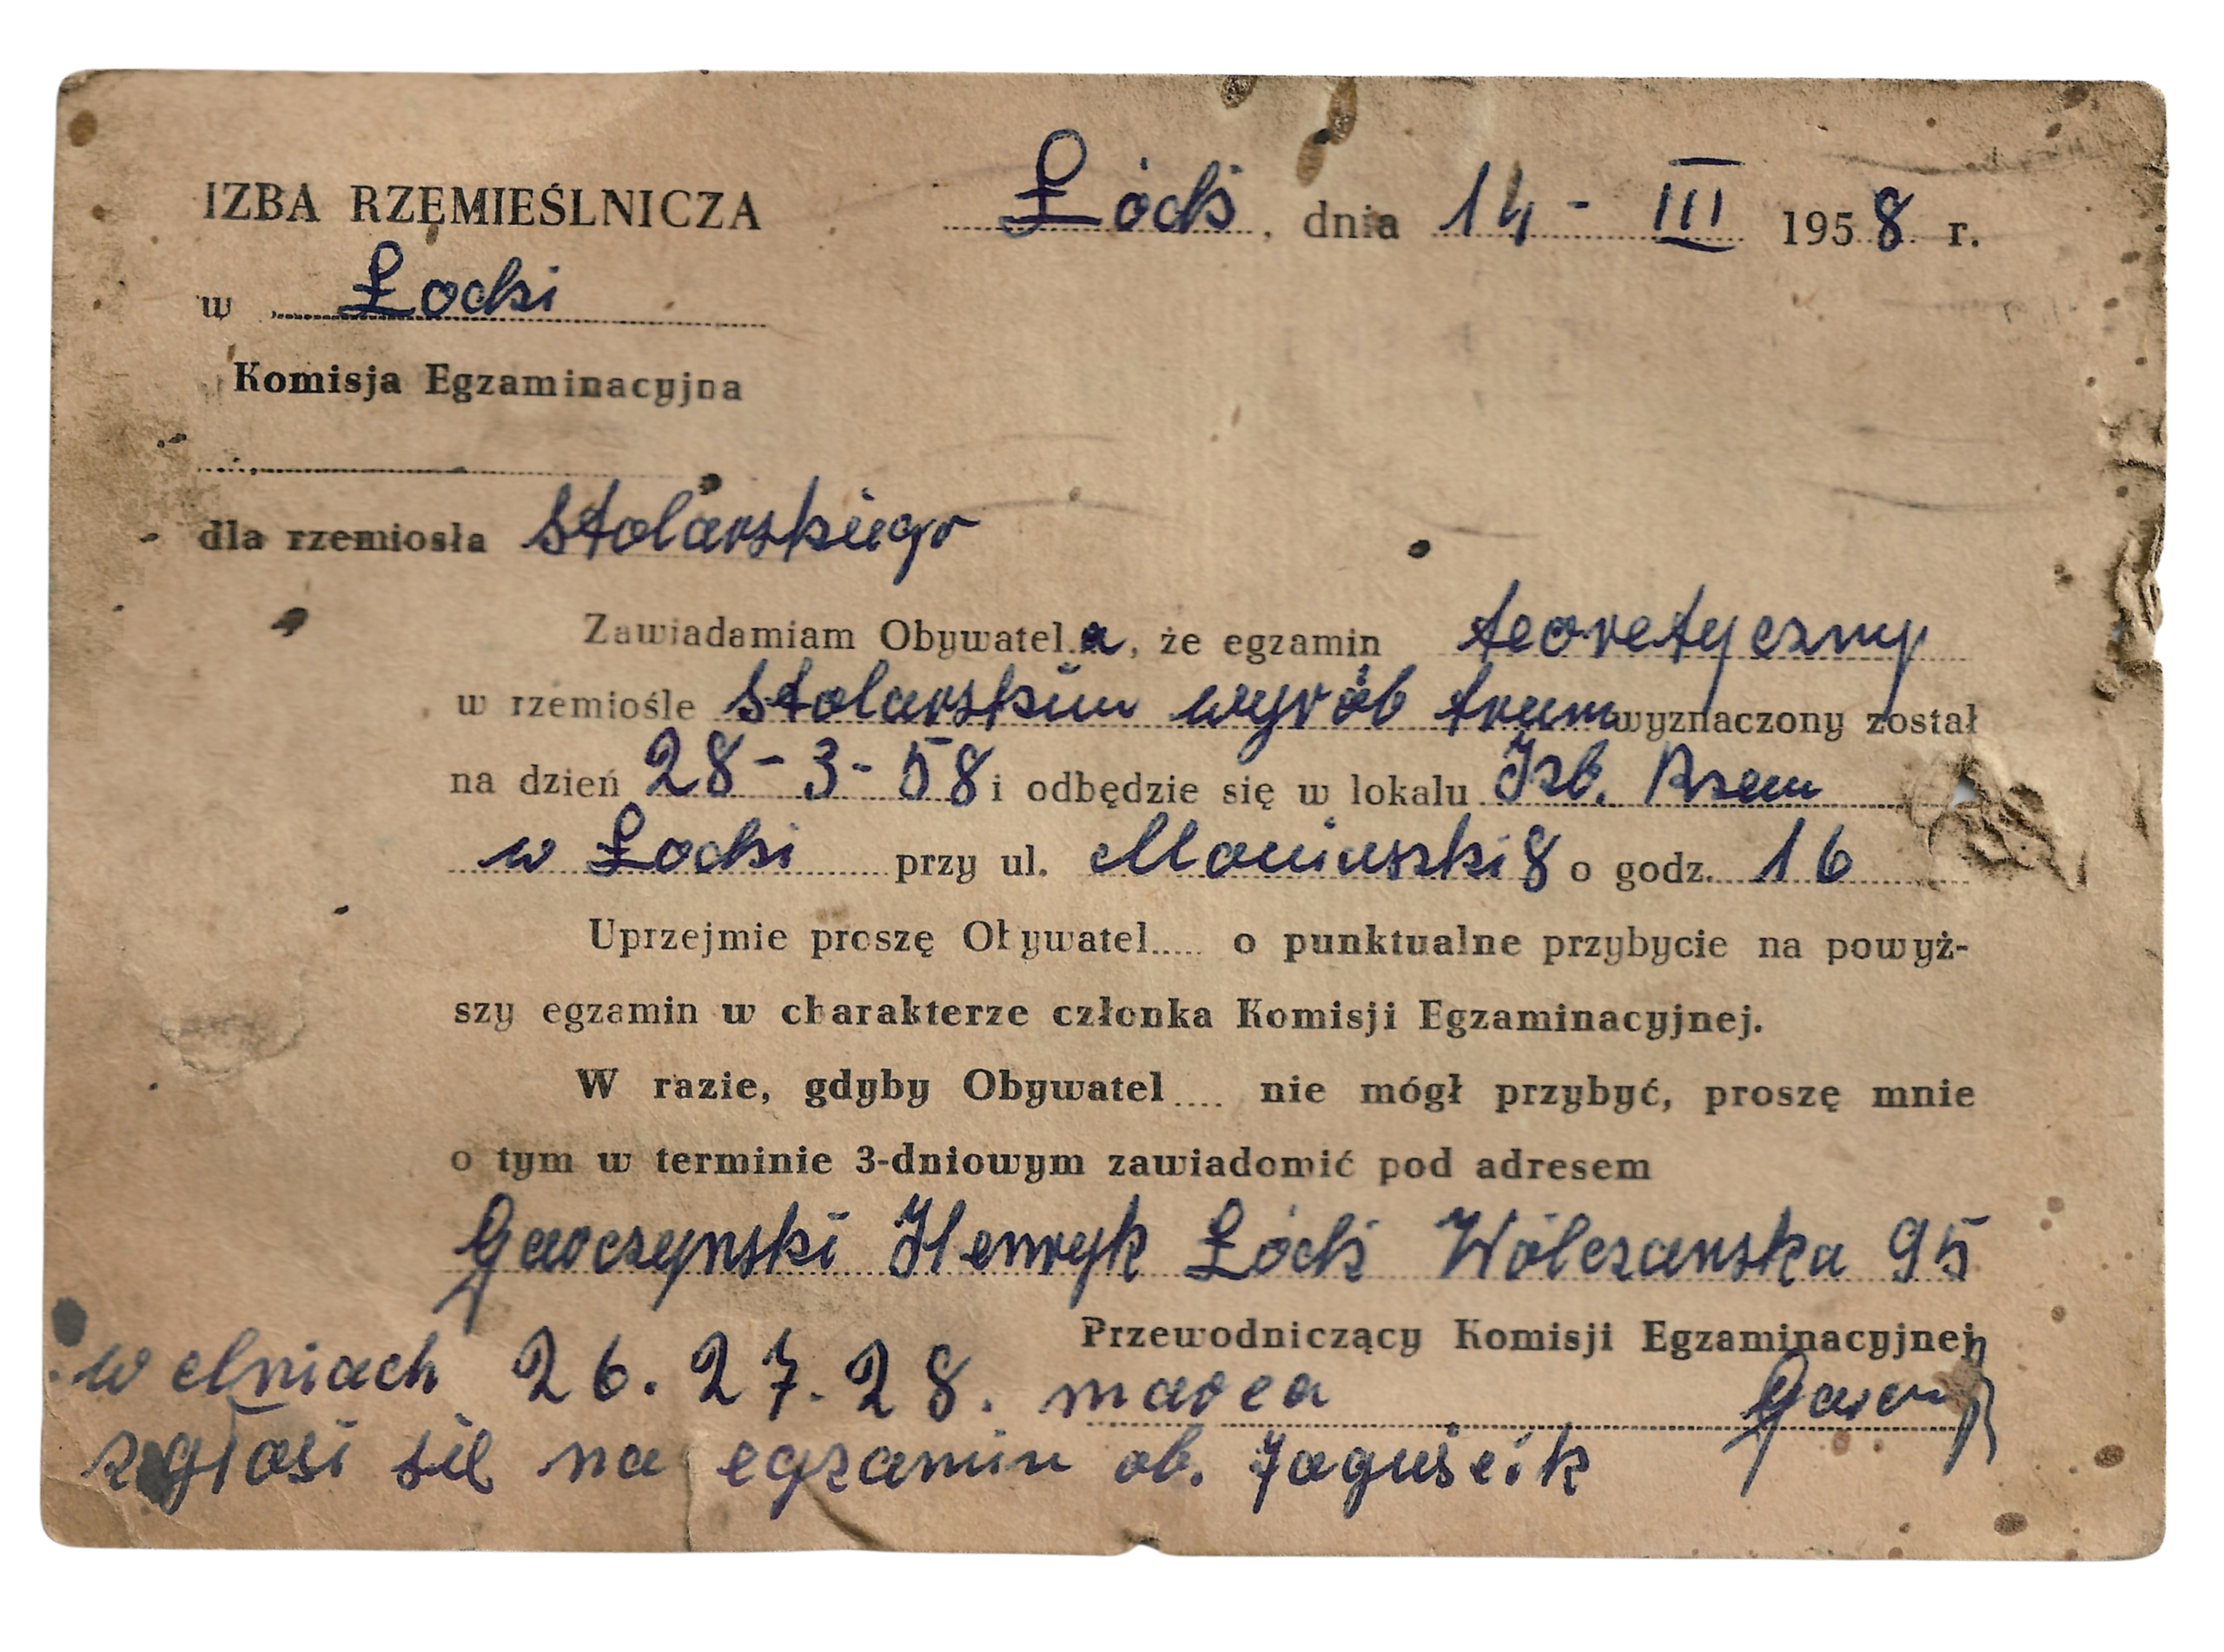 IZBA RZEMIEŚLNICZA
Łódź, dnia 14 - III 1958 r.
w Łodzi
Komisja Egzaminacyjna
dla rzemiosła stolarskiego
Zawiadamiam Obywatela, że egzamin teoretyczny
w rzemiośle stolarskim wyrób trum wyznaczony został
na dzień 28-3-58 i odbędzie się w lokalu Izb. Rzem
w Łodzi przy ul. Moniuszki 8 o godz. 16
Uprzejmie proszę Obywatel..... o punktualne przybycie na powyż-
szy egzamin w charakterze członka Komisji Egzaminacyjnej.
W razie, gdyby Obywatel.... nie mógł przybyć, proszę mnie
o tym w terminie 3-dniowym zawiadomić pod adresem
Gawczynski Henryk Łódź Wólczanska 95
Przewodniczący Komisji Egzaminacyjnej
w dniach 26. 27. 28. marca
zgłosi się na egzamin ob. Jaguścik